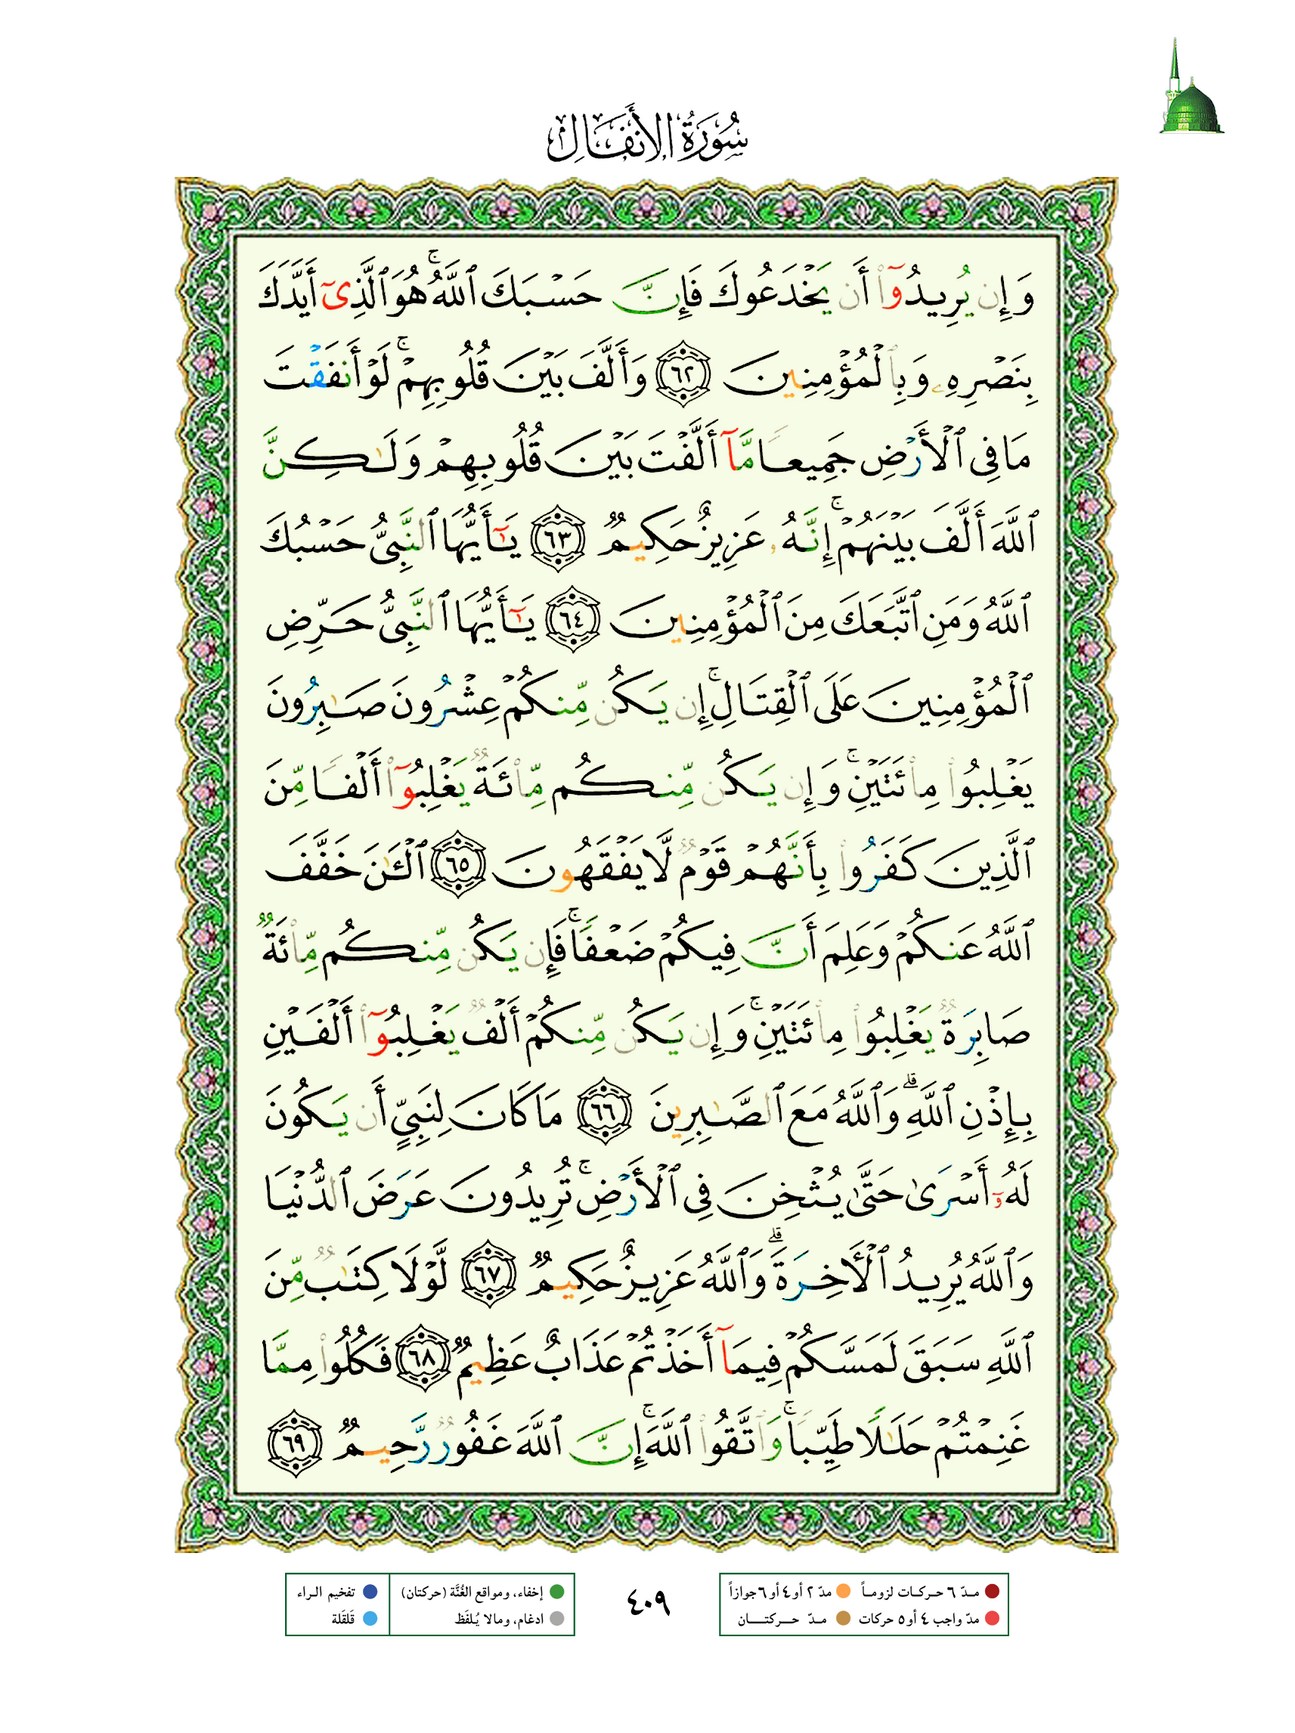 سُورَةُ الأَنفَال
وَإِن يُرِيدُوٓا۟ أَن يَخْدَعُوكَ فَإِنَّ حَسْبَكَ ٱللَّهُ ۚ هُوَ ٱلَّذِىٓ أَيَّدَكَ
بِنَصْرِهِۦ وَبِٱلْمُؤْمِنِينَ ٦٢ وَأَلَّفَ بَيْنَ قُلُوبِهِمْ ۚ لَوْ أَنفَقْتَ
مَا فِى ٱلْأَرْضِ جَمِيعًا مَّآ أَلَّفْتَ بَيْنَ قُلُوبِهِمْ وَلَـٰكِنَّ
ٱللَّهَ أَلَّفَ بَيْنَهُمْ ۚ إِنَّهُۥ عَزِيزٌ حَكِيمٌ ٦٣ يَـٰٓأَيُّهَا ٱلنَّبِىُّ حَسْبُكَ
ٱللَّهُ وَمَنِ ٱتَّبَعَكَ مِنَ ٱلْمُؤْمِنِينَ ٦٤ يَـٰٓأَيُّهَا ٱلنَّبِىُّ حَرِّضِ
ٱلْمُؤْمِنِينَ عَلَى ٱلْقِتَالِ ۚ إِن يَكُن مِّنكُمْ عِشْرُونَ صَـٰبِرُونَ
يَغْلِبُوا۟ مِا۟ئَتَيْنِ ۚ وَإِن يَكُن مِّنكُم مِّا۟ئَةٌ يَغْلِبُوٓا۟ أَلْفًا مِّنَ
ٱلَّذِينَ كَفَرُوا۟ بِأَنَّهُمْ قَوْمٌ لَّا يَفْقَهُونَ ٦٥ ٱلْـَٔـٰنَ خَفَّفَ
ٱللَّهُ عَنكُمْ وَعَلِمَ أَنَّ فِيكُمْ ضَعْفًا ۚ فَإِن يَكُن مِّنكُم مِّا۟ئَةٌ
صَابِرَةٌ يَغْلِبُوا۟ مِا۟ئَتَيْنِ ۚ وَإِن يَكُن مِّنكُمْ أَلْفٌ يَغْلِبُوٓا۟ أَلْفَيْنِ
بِإِذْنِ ٱللَّهِ ۗ وَٱللَّهُ مَعَ ٱلصَّـٰبِرِينَ ٦٦ مَا كَانَ لِنَبِىٍّ أَن يَكُونَ
لَهُۥٓ أَسْرَىٰ حَتَّىٰ يُثْخِنَ فِى ٱلْأَرْضِ ۚ تُرِيدُونَ عَرَضَ ٱلدُّنْيَا
وَٱللَّهُ يُرِيدُ ٱلْـَٔاخِرَةَ ۗ وَٱللَّهُ عَزِيزٌ حَكِيمٌ ٦٧ لَّوْلَا كِتَـٰبٌ مِّنَ
ٱللَّهِ سَبَقَ لَمَسَّكُمْ فِيمَآ أَخَذْتُمْ عَذَابٌ عَظِيمٌ ٦٨ فَكُلُوا۟ مِمَّا
غَنِمْتُمْ حَلَـٰلًا طَيِّبًا ۚ وَٱتَّقُوا۟ ٱللَّهَ ۚ إِنَّ ٱللَّهَ غَفُورٌ رَّحِيمٌ ٦٩
مدّ ٦ حركات لزوماً مدّ ٢ أو ٤ أو ٦ جوازاً
مدّ واجب ٤ أو ٥ حركات مدّ حركتان
٤٠٩
إخفاء، ومواقع الغُنَّة (حركتان) تفخيم الراء
ادغام، ومالا يُلفَظ قَلقَلة